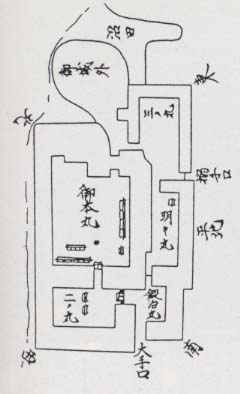 沼田
御城外
三ノ丸
東
搦手口
平地
御本丸
明キ丸
鍛冶丸
二ノ丸
大手口
南